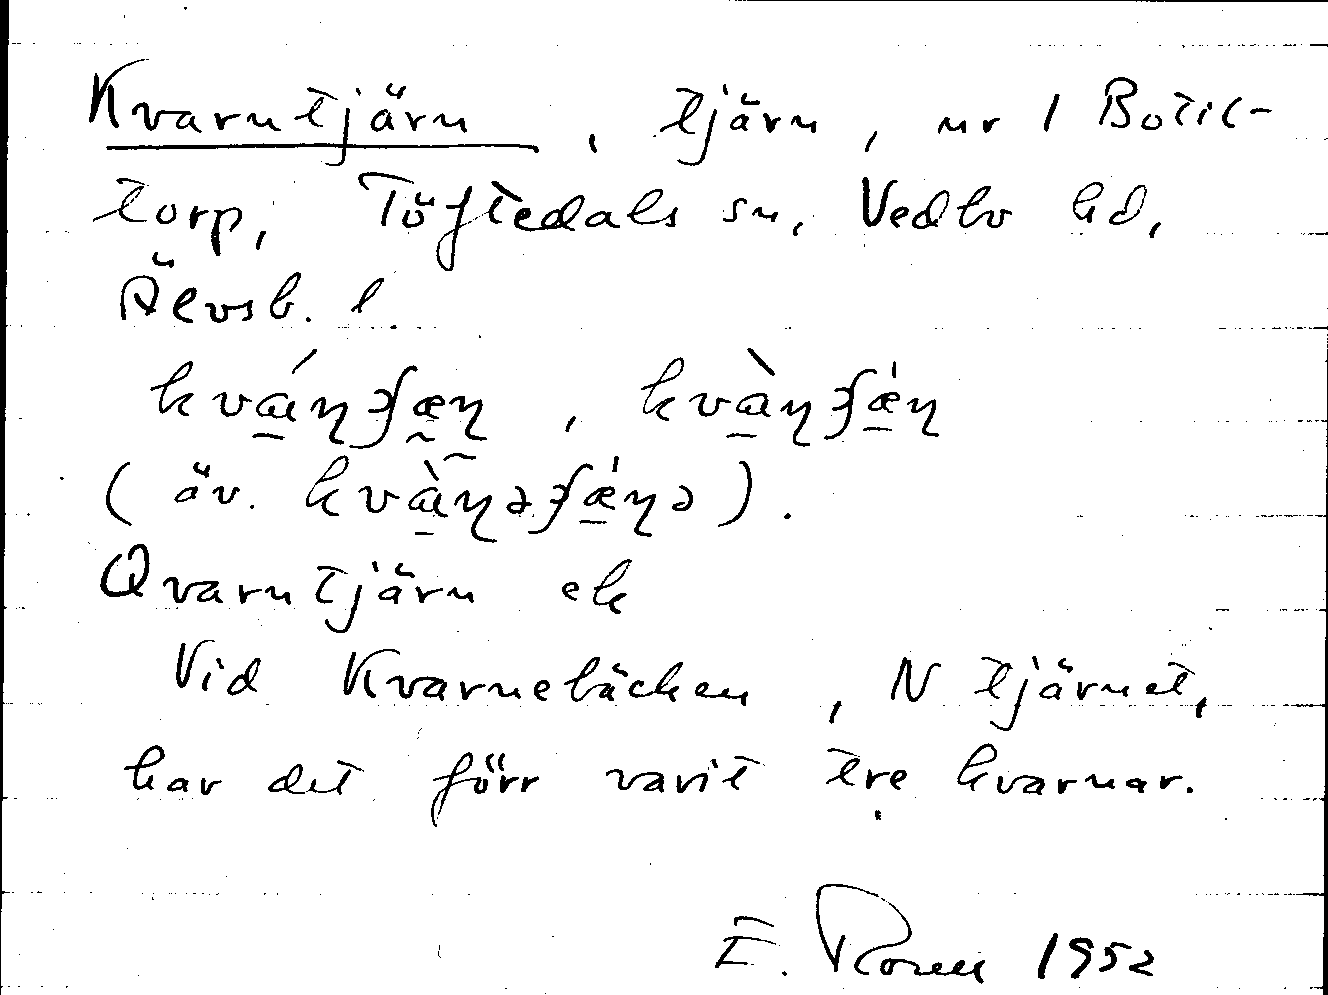 Kvarntjärn, tjärn, nr 1 Botil-
torp, Töftedals sn, Vedbo hd,
Älvsb. l.
( äv.
Qvarntjärn ek
Vid Kvarnebäcken, N tjärnet,
har det förr varit tre kvarnar.
E. 1952